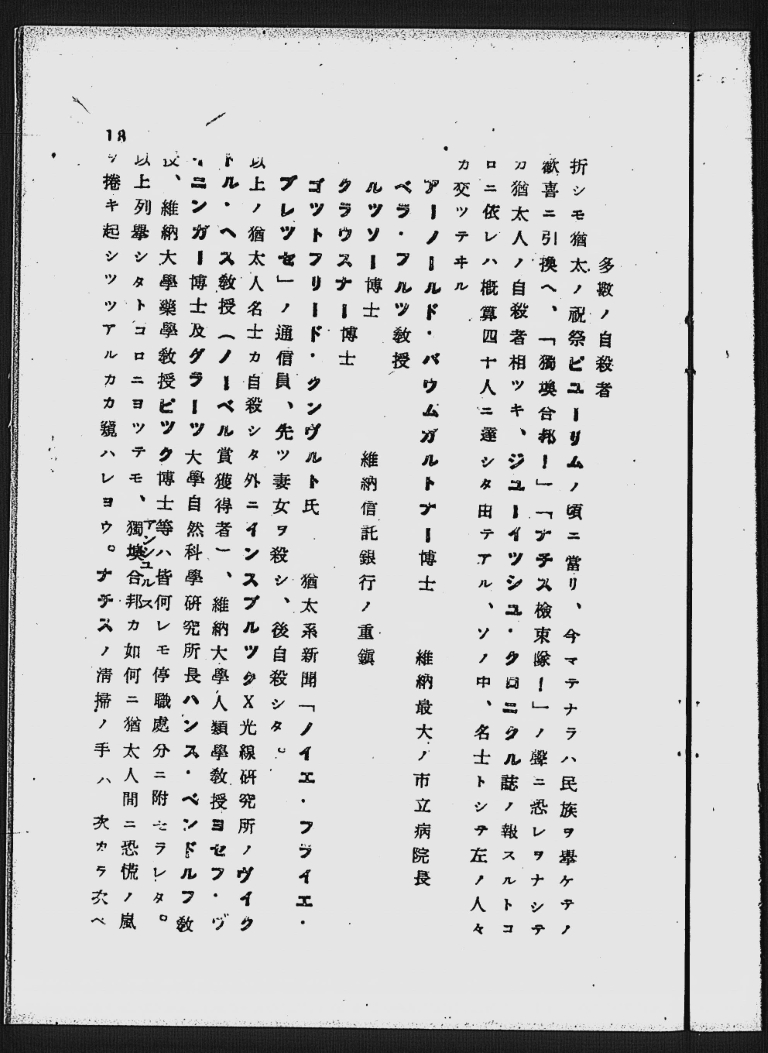 18
多數ノ自殺者
折シモ猶太ノ祝祭ピユーリムノ頃ニ當リ、今マテナラハ民族ヲ擧ケテノ
歡喜ニ引換ヘ、「獨墺合邦ー」「ナチス檢束隊ー」ノ聲ニ恐レヲナシテ
カ猶太人ノ自殺者相ツキ、ジユーイツシユ・クロニクル誌ノ報スルトコ
ロニ依レハ概算四十人ニ達シタ由テアル、ソノ中、名士トシテ左ノ人々
カ交ツテヰル
アーノールド・バウムガルトナー博士 維納最大ノ市立病院長
ベラ・フルツ教授
ルツソー博士
クラウスナー博士 維納信託銀行ノ重鎭
ゴツトフリード・クンヴルト氏 猶太系新聞「ノイエ・フライエ・
プレツセ」ノ通信員、先ツ妻女ヲ殺シ、後自殺シタ。
以上ノ猶太人名士カ自殺シタ外ニインスブルツクX光線研究所ノヴイク
トル・ヘス教授(ノーベル賞獲得者)、維納大學人類學教授ヨセフ・ヴ
エニンガー博士及グラーツ大學自然科學研究所長ハンス・ベンドルフ教
授、維納大學藥學教授ピツク博士等ハ皆何レモ停職處分ニ附セラレタ。
以上列擧シタトコロニヨツテモ、獨墺合邦カ如何ニ猶太人間ニ恐慌ノ嵐
アンシユルス
ヲ捲キ起シツツアルカカ窺ハレヨウ。ナチスノ清掃ノ手ハ次カラ次ヘ